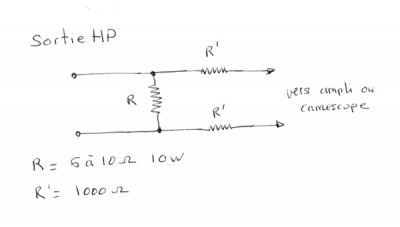 Sortie HP
R'
R
R'
vers ampli ou
camescope
R = 5 à 10 Ω 10W
R' = 1000 Ω